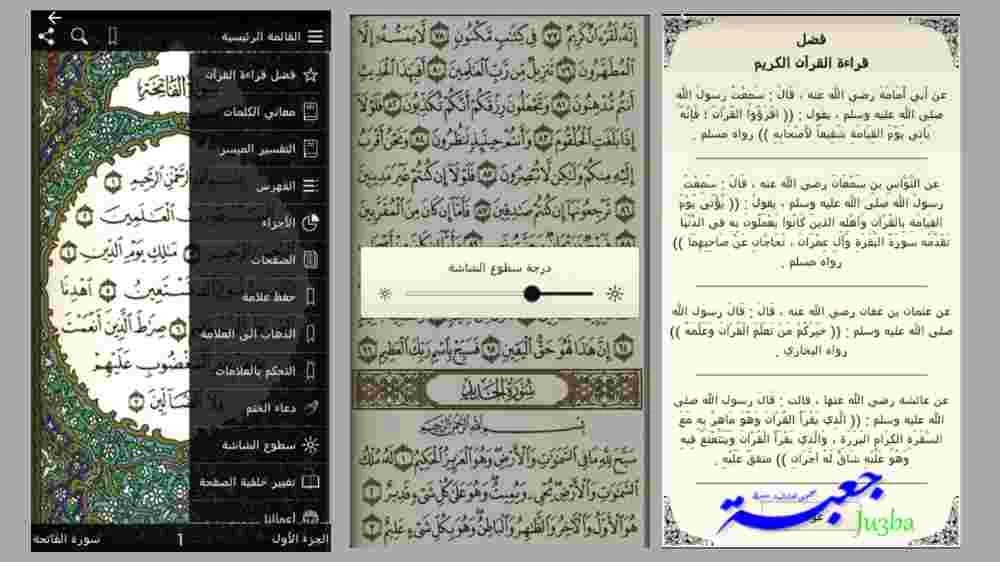 القائمة الرئيسية
فضل قراءة القرآن
معاني الكلمات
التفسير الميسر
الفهرس
الأجزاء
الصفحات
حفظ علامة
الذهاب الى العلامة
التحكم بالعلامات
دعاء الختم
سطوع الشاشة
تغيير خلفية الصفحة
أعمالنا
الجزء الأول
1
سورة الفاتحة
مَلِكِ يَوْمِ الدِّينِ
أَهْدِنَا
صِرَاطَ الَّذِينَ أَنْعَمْتَ
إِنَّهُ لَقُرْءَانٌ كَرِيمٌ ٧٧ فِي كِتَٰبٍ مَّكْنُونٍ ٧٨ لَّا يَمَسُّهُ إِلَّا
الْمُطَهَّرُونَ ٧٩ تَنزِيلٌ مِّن رَّبِّ الْعَٰلَمِينَ ٨٠ أَفَبِهَٰذَا الْحَدِيثِ
أَنتُم مُّدْهِنُونَ ٨١ وَتَجْعَلُونَ رِزْقَكُمْ أَنَّكُمْ تُكَذِّبُونَ ٨٢ فَلَوْلَا
إِذَا بَلَغَتِ الْحُلْقُومَ ٨٣ وَأَنتُمْ حِينَئِذٍ تَنظُرُونَ ٨٤ وَنَحْنُ أَقْرَبُ
إِلَيْهِ مِنكُمْ وَلَٰكِن لَّا تُبْصِرُونَ ٨٥ فَلَوْلَا إِن كُنتُمْ غَيْرَ مَدِينِينَ
٨٦ تَرْجِعُونَهَا إِن كُنتُمْ صَٰدِقِينَ ٨٧ فَأَمَّا إِن كَانَ مِنَ الْمُقَرَّبِينَ
درجة سطوع الشاشة
إِنَّ هَٰذَا لَهُوَ حَقُّ الْيَقِينِ ٩٥ فَسَبِّحْ بِاسْمِ رَبِّكَ الْعَظِيمِ ٩٦
سُورَةُ الحَدِيدِ
بِسْمِ اللَّهِ الرَّحْمَٰنِ الرَّحِيمِ
سَبَّحَ لِلَّهِ مَا فِي السَّمَٰوَٰتِ وَالْأَرْضِ وَهُوَ الْعَزِيزُ الْحَكِيمُ ١ لَهُ مُلْكُ
السَّمَٰوَٰتِ وَالْأَرْضِ يُحْيِي وَيُمِيتُ وَهُوَ عَلَىٰ كُلِّ شَيْءٍ قَدِيرٌ ٢
هُوَ الْأَوَّلُ وَالْآخِرُ وَالظَّٰهِرُ وَالْبَاطِنُ وَهُوَ بِكُلِّ شَيْءٍ عَلِيمٌ ٣
فضل
قراءة القرآن الكريم
عن أبي أمامة رضي الله عنه ، قال : سمعت رسول الله
صلى الله عليه وسلم ، يقول : (( اقرؤوا القرآن ؛ فإنه
يأتي يوم القيامة شفيعاً لأصحابه )) رواه مسلم .
عن النواس بن سمعان رضي الله عنه ، قال : سمعت
رسول الله صلى الله عليه وسلم ، يقول : (( يؤتى يوم
القيامة بالقرآن وأهله الذين كانوا يعملون به في الدنيا
تقدمه سورة البقرة وآل عمران ، تحاجان عن صاحبهما ))
رواه مسلم .
عن عثمان بن عفان رضي الله عنه ، قال : قال رسول الله
صلى الله عليه وسلم : (( خيركم من تعلم القرآن وعلمه ))
رواه البخاري .
عن عائشة رضي الله عنها ، قالت : قال رسول الله صلى
الله عليه وسلم : (( الذي يقرأ القرآن وهو ماهر به مع
السفرة الكرام البررة ، والذي يقرأ القرآن ويتتعتع فيه
وهو عليه شاق له أجران )) متفق عليه .
جعبة
Juzba